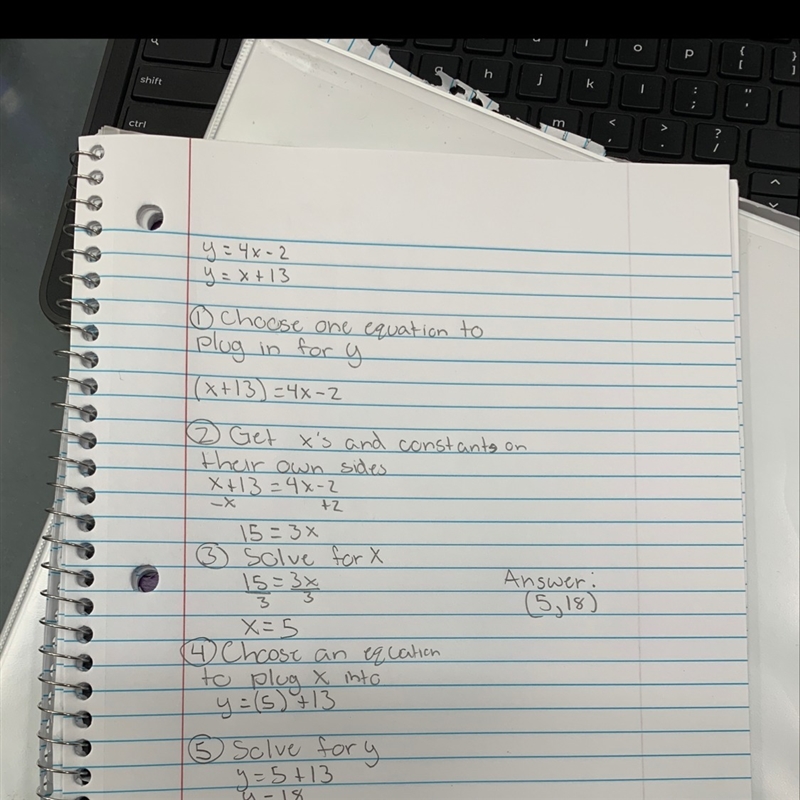 Q
I
O
P
{
[
}
]
shift
G
H
J
K
L
:
;
"
'
ctrl
M
<
,
>
.
?
/
y = 4x - 2
y = x + 13
① Choose one equation to
plug in for y
(x+13) = 4x - 2
② Get x's and constants on
their own sides
x + 13 = 4x - 2
-x +2
15 = 3x
③ Solve for x
15 = 3x
3 3
x = 5
Answer:
(5,18)
④ Choose an equation
to plug x into
y = (5) + 13
⑤ Solve for y
y = 5 + 13
y = 18